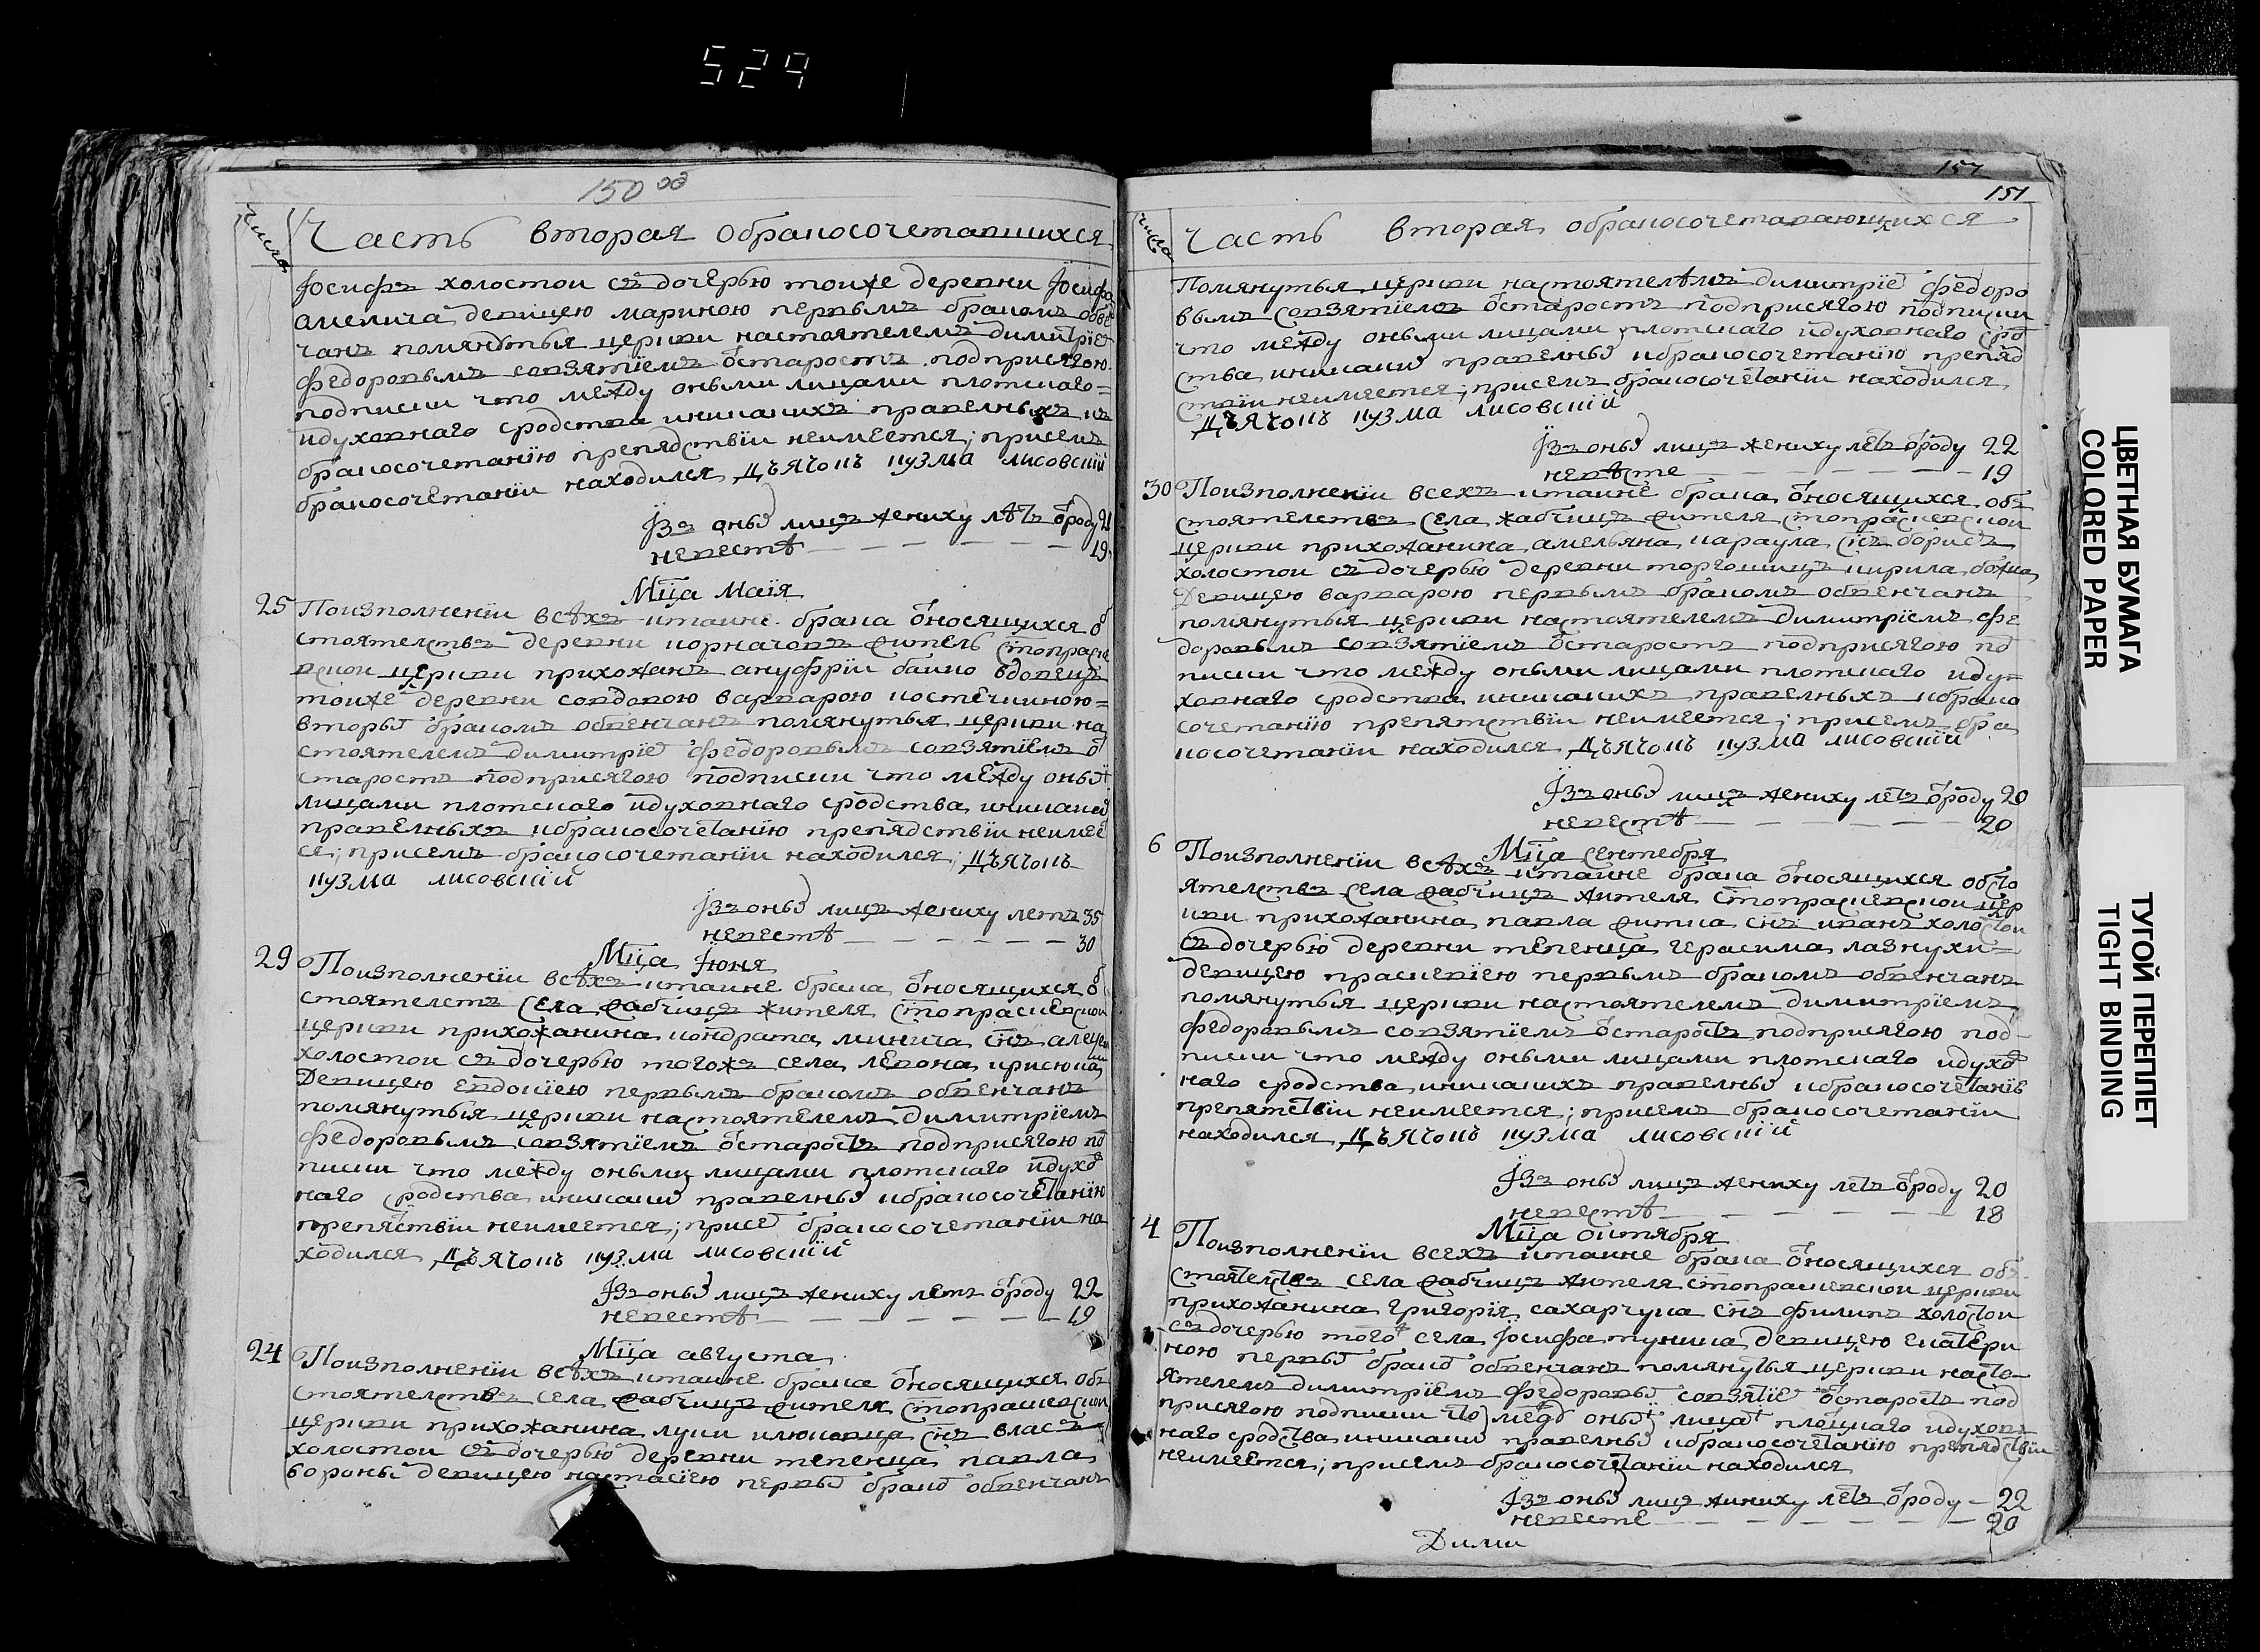 529
150 об
Число
Часть вторая обракосочетавшихся
Іосифъ холостои съ дочерью тоиже деревни Іосифа
девицею мариною первымъ бракомъ обве
чанъ помянутыя церкви настоятелемъ димитріе
федоровымъ совзятіемъ ѿстаростъ подприсягою
подписки что между оными лицами плотскаго=
идуховнаго сродства иникакихъ правелныхъ къ
бракосочетанію препядствіи неимеется; присемъ
бракосочетаніи находился Дьячокъ кузма лисовскїй
Изъ оны лицъ жениху лѣтъ ѿроду 21
невестѣ — — — — — — 19
Мца Маія
25 Поизполненіи всѣхъ ктаине брака ѿносящихся об
стоятелствъ деревни корначовъ житель стопраске
вскои церкви прихожанъ ануфріи баико вдовецъ
тоиже деревни совдовою варварою костечкиною=
вторы бракомъ обвенчанъ помянутыя церкви на
стоятелемъ димитріе федоровымъ совзятіемъ ѿ
старостъ подприсягою подписки что между оны
лицами плотскаго идуховнаго сродства иникаких
правелныхъ кбракосочетанію препядствіи неимее
се; присемъ бракосочетаніи находился; Дьячокъ
кузма лисовскїй
Изъ оны лицъ жениху летъ 35
невестѣ — — — — — — 30
Мца Іюня
29 Поизполненіи всѣхъ ктаине брака ѿносящихся об
стоятелстъ села жабчицъ жителя стопраскевскои
церкви прихожанина кондрата минича снъ алеѯеи
холостои съ дочерью тогожъ села левона крисюка
Девицею евдокіею первымъ бракомъ обвенчанъ
помянутыя церкви настоятелемъ димитріемъ
федоровымъ совзятіемъ ѿстаростъ подприсягою по
писки что между оными лицами плотскаго идухо
наго сродства иникаки правелны кбракосочетанію
препятствіи неимеется; присе бракосочетаніи на
ходился Дьячокъ кузма лисовскїй
Изъ оны лицъ жениху летъ ѿроду 22
невестѣ — — — — — — 19
Мца августа
24 Поизполненіи всѣхъ ктаине брака ѿносящихся об
стоятелствъ села жабчицъ жителя стопраскевскои
церкви прихожанина луки илюковца снъ власъ
холостои съ дочерью деревни тепенца павла
вороны девицею настасіею первы брако обвенчанъ
157
151
Число
Часть вторая обракосочетавающихся
Помянутыя церкви настоятелѣмъ димитріе федоро
вымъ совзятіемъ ѿстаростъ подприсягою подписки
что между оными лицами плотскаго идуховнаго срод
ства иникаки правелны кбракосочетанію препяд
ствіи неимеется; присемъ бракосочетаніи находился
Дьячокъ кузма лисовскїй
Изъ оны лицъ жениху летъ ѿроду 22
невѣсте — — — — — — 19
30 Поизполненіи всехъ ктаине брака ѿносящихся об
стоятелствъ села жабчицъ жителя стопраскевскои
церкви прихожанина амельяна караула снъ борисъ
холостои съ дочерью деревни торгошицъ кирила божка
Девицею варварою первымъ бракомъ обвенчанъ
помянутыя церкви настоятелемъ димитріемъ фе
доровымъ совзятіемъ ѿстаростъ подприсягою по
писки что между оными лицами плотскаго иду=
ховнаго сродства иникакихъ правелныхъ кбрако
сочетанію препятствіи неимеется; присемъ бра
косочетаніи находился Дьячокъ кузма лисовскїй
Изъ оны лицъ жениху летъ ѿроду 20
невестѣ — — — — — — 20
Мца сентебря
6 Поизполненіи всѣхъ ктаине брака ѿносящихся обсто
ятелствъ села жабчицъ жителя стопраскевскои цер
кви прихожанина павла житка снъ иванъ холостои
съ дочерью деревни тепенца герасима лазнухи=
девицею праскевіею первымъ бракомъ обвенчанъ
помянутыя церкви настоятелемъ димитріемъ
федоровымъ совзятіемъ ѿстаростъ подприсягою под-
писки что между оными лицами плотскаго идухо
наго сродства иникакихъ правелны кбракосочетаніе
препятствіи неимеется; присемъ бракосочетаніи
находился Дьячокъ кузма лисовскїй
Изъ оны лицъ жениху летъ ѿроду 20
невестѣ — — — — — — 18
Мца октября
4 Поизполненіи всехъ ктаине брака ѿносящихся об
стоятелствъ села жабчицъ жителя стопраскевскои церкви
прихожанина григорія сахарчука снъ филипъ холостои
съ дочерью того села Іосифа тукиша девицею екатери
ною первы брако обвенчанъ помянутыя церкви насто-
ятелемъ димитріемъ федоровы совзятіе ѿстаростъ под
присягою подписки что межд оны лица плоцкаго идухов
наго сродства иникаки правелны кбракосочетанію препядствіи
неимеется; присемъ бракосочетаніи находился
Изъ оны лицъ жиниху летъ ѿроду — 22
невесте — — — — — — 20
Дими
ЦВЕТНАЯ БУМАГА
COLORED PAPER
ТУГОЙ ПЕРЕПЛЕТ
TIGHT BINDING